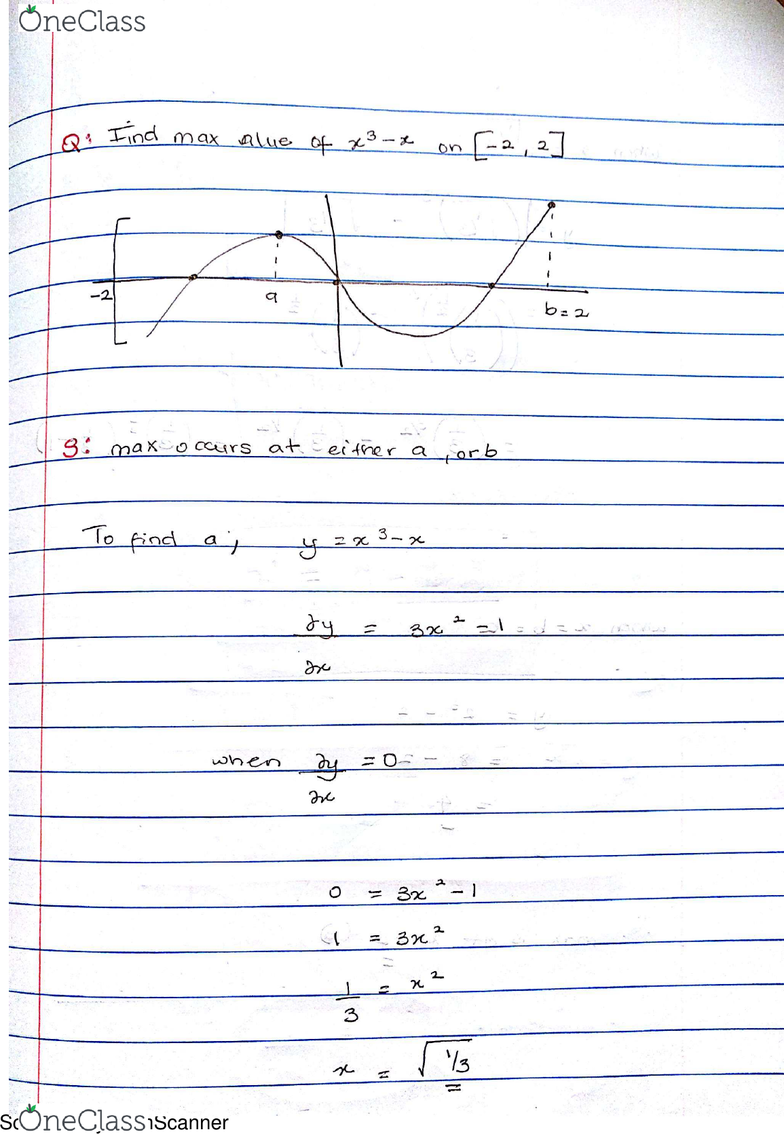 OneClass
Q: Find max value of x³-x on [-2, 2]
-2 a b=2
S: max occurs at either a, or b
To find a; y = x³-x
∂y/∂x = 3x² - 1
when ∂y/∂x = 0
0 = 3x² - 1
1 = 3x²
1/3 = x²
x = √1/3
OneClass Scanner